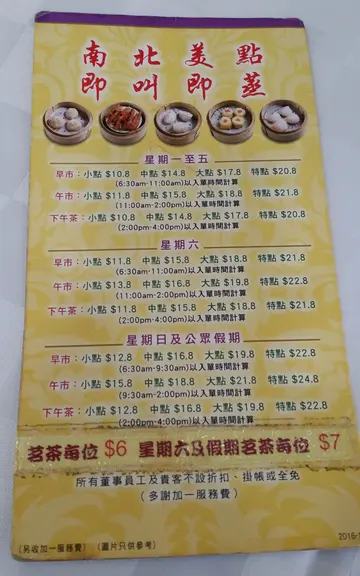 南北美點
即叫即蒸
星期一至五
早市：小點 $10.8 中點 $14.8 大點 $17.8 特點 $20.8
(6:30am-11:00am)以入單時間計算
午市：小點 $11.8 中點 $15.8 大點 $18.8 特點 $21.8
(11:00am-2:00pm)以入單時間計算
下午茶：小點 $10.8 中點 $14.8 大點 $17.8 特點 $20.8
(2:00pm-4:00pm)以入單時間計算
星期六
早市：小點 $11.8 中點 $15.8 大點 $18.8 特點 $21.8
(6:30am-11:00am)以入單時間計算
午市：小點 $13.8 中點 $16.8 大點 $19.8 特點 $22.8
(11:00am-2:00pm)以入單時間計算
下午茶：小點 $11.8 中點 $15.8 大點 $18.8 特點 $21.8
(2:00pm-4:00pm)以入單時間計算
星期日及公眾假期
早市：小點 $12.8 中點 $16.8 大點 $19.8 特點 $22.8
(6:30am-9:30am)以入單時間計算
午市：小點 $15.8 中點 $18.8 大點 $21.8 特點 $24.8
(9:30am-2:00pm)以入單時間計算
下午茶：小點 $12.8 中點 $16.8 大點 $19.8 特點 $22.8
(2:00pm-4:00pm)以入單時間計算
茗茶每位 $6 星期六及假期茗茶每位 $7
所有董事員工及貴客不設折扣、掛帳或全免
(多謝加一服務費)
(另收加一服務費) (圖片只供參考)